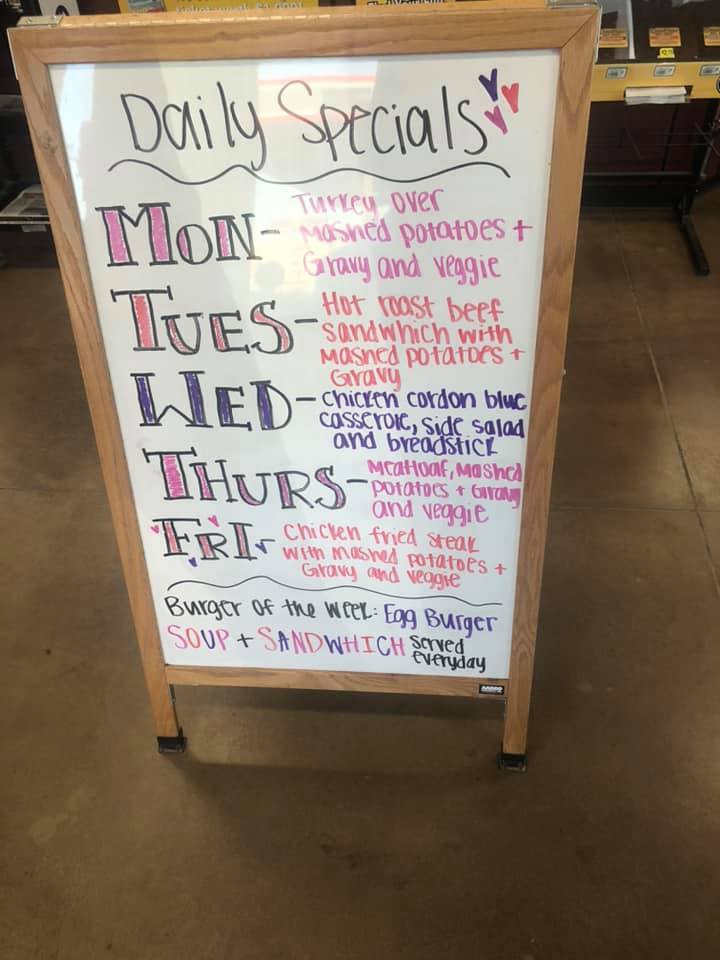 Daily Specials
MON- Turkey over
Mashed potatoes +
Gravy and veggie
TUES- Hot roast beef
sandwhich with
Mashed potatoes +
Gravy
WED- chicken cordon blue
casserole, side salad
and breadstick
THURS- Meatloaf, Mashed
potatoes + Gravy
and veggie
FRI- Chicken fried steak
with mashed potatoes +
Gravy and veggie
Burger of the week: Egg Burger
SOUP + SANDWHICH served
everyday